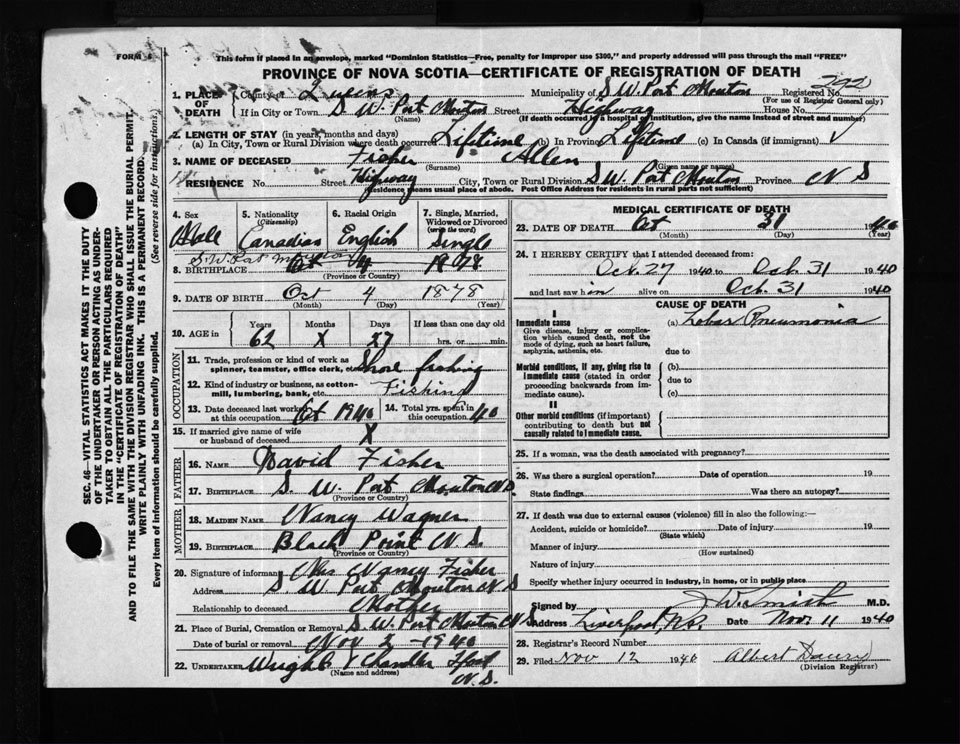 FORM 6
This form if placed in an envelope, marked "Dominion Statistics—Free, penalty for improper use $300," and properly addressed will pass through the mail "FREE"
PROVINCE OF NOVA SCOTIA—CERTIFICATE OF REGISTRATION OF DEATH
1. PLACE OF DEATH County or Queens Municipality of S. W. Port Mouton Registered No. 292
(For use of Registrar General only)
If in City or Town S. W. Port Mouton Street Highway House No.
(Name) (If death occurred in a hospital or institution, give the name instead of street and number)
2. LENGTH OF STAY (in years, months and days)
(a) In City, Town or Rural Division where death occurred Lifetime (b) In Province Lifetime (c) In Canada (if immigrant) ✓
3. NAME OF DECEASED Fisher Allen
(Surname) (Given name or names)
RESIDENCE No. Street Highway City, Town or Rural Division S W Port Mouton Province N S
Residence means usual place of abode. Post Office Address for residents in rural parts not sufficient)
4. Sex 5. Nationality (Citizenship) 6. Racial Origin 7. Single, Married, Widowed or Divorced (write the word)
Male Canadian English Single
S. W. Port Mouton
8. BIRTHPLACE Oct 4 1878
(Province or Country)
9. DATE OF BIRTH Oct 4 1878
(Month) (Day) (Year)
10. AGE in Years Months Days If less than one day old
62 X 27 hrs. or min.
OCCUPATION
11. Trade, profession or kind of work as spinner, teamster, office clerk, etc. Shore fishing
12. Kind of industry or business, as cotton-mill, lumbering, bank, etc. Fishing
13. Date deceased last worked at this occupation Oct 1940 14. Total yrs. spent in this occupation 40
15. If married give name of wife or husband of deceased X
FATHER
16. NAME David Fisher
17. BIRTHPLACE S. W. Port Mouton N S.
(Province or Country)
MOTHER
18. MAIDEN NAME Nancy Wagner
19. BIRTHPLACE Black Point N S.
(Province or Country)
20. Signature of informant Mrs Nancy Fisher
Address S. W. Port Mouton N S
Relationship to deceased Mother
21. Place of Burial, Cremation or Removal S. W. Port Mouton N S
Date of burial or removal Nov 2 - 1940
22. UNDERTAKER Wright & Chandler
(Name and address) N. S.
MEDICAL CERTIFICATE OF DEATH
23. DATE OF DEATH Oct 31 1940
(Month) (Day) (Year)
24. I HEREBY CERTIFY that I attended deceased from:
Oct. 27 1940 to Oct. 31 1940
and last saw him alive on Oct. 31 1940
CAUSE OF DEATH
I
Immediate cause (a) Lobar Pneumonia
Give disease, injury or complication which caused death, not the mode of dying, such as heart failure, asphyxia, asthenia, etc.
due to
Morbid conditions, if any, giving rise to immediate cause (stated in order proceeding backwards from immediate).
(b)
due to
(c)
II
Other morbid conditions (if important) contributing to death but not causally related to immediate cause.
25. If a woman, was the death associated with pregnancy?
26. Was there a surgical operation? Date of operation 19
State findings Was there an autopsy?
27. If death was due to external causes (violence) fill in also the following:—
Accident, suicide or homicide? Date of injury 19
(State which)
Manner of injury
(How sustained)
Nature of injury
Specify whether injury occurred in industry, in home, or in public place
Signed by J W. Smith M.D.
Address Liverpool, N.S. Date Nov. 11 1940
28. Registrar's Record Number
29. Filed Nov 12 1940 Albert
(Division Registrar)
SEC. 46—VITAL STATISTICS ACT MAKES IT THE DUTY
OF THE UNDERTAKER OR PERSON ACTING AS UNDER-
TAKER TO OBTAIN ALL THE PARTICULARS REQUIRED
IN THE "CERTIFICATE OF REGISTRATION OF DEATH"
AND TO FILE THE SAME WITH THE DIVISION REGISTRAR WHO SHALL ISSUE THE BURIAL PERMIT.
WRITE PLAINLY WITH UNFADING INK. THIS IS A PERMANENT RECORD.
Every item of information should be carefully supplied. (See reverse side for instructions)